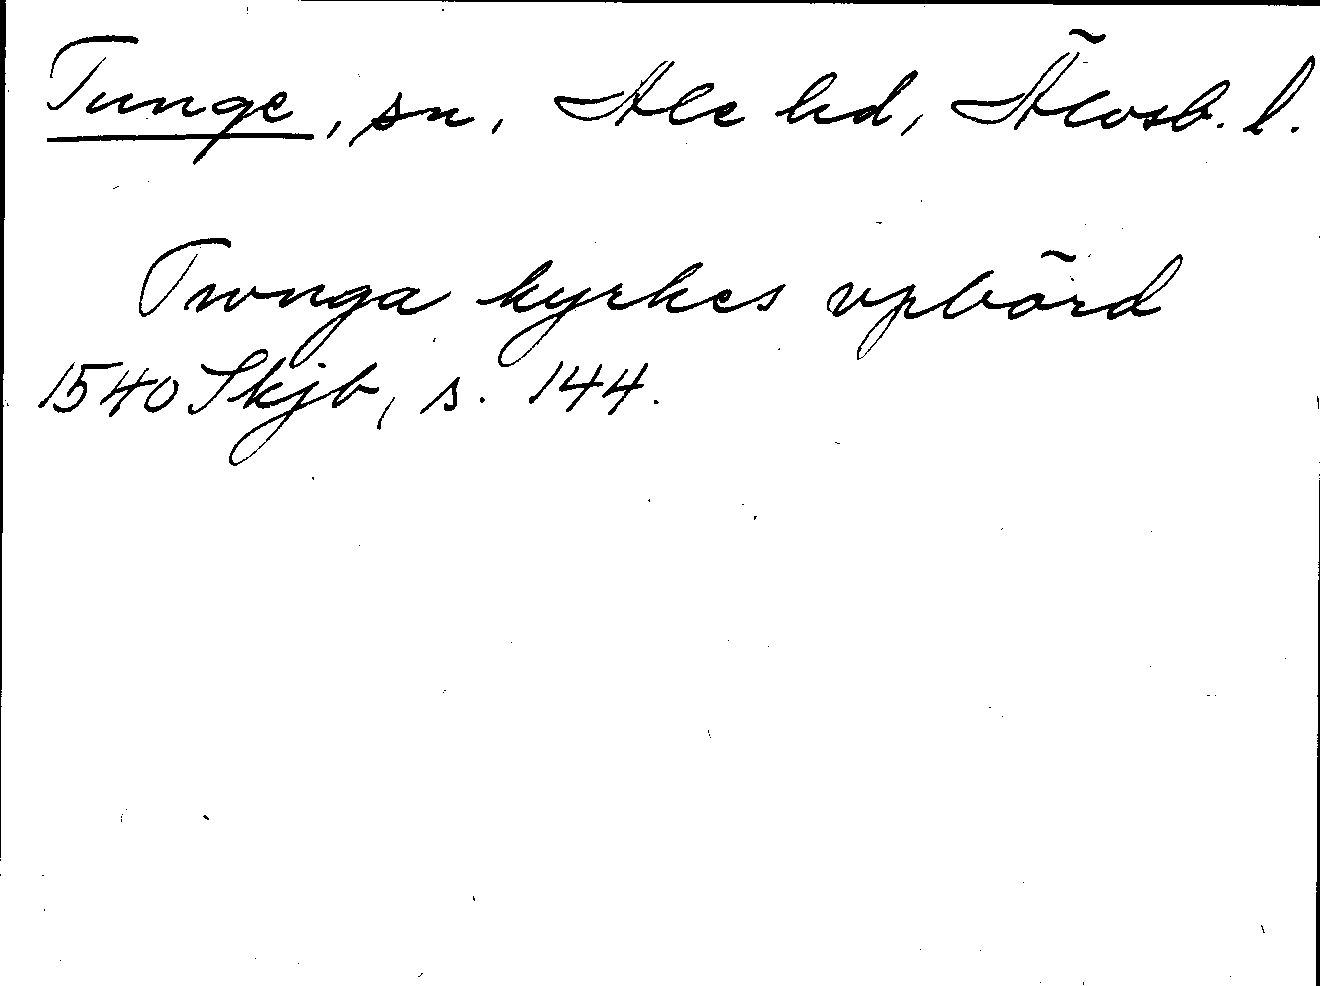 Tunge, sn, Ale hd, Älvsb. l.
Twnga kyrkes vpbörd
1540 Skjb, s. 144.